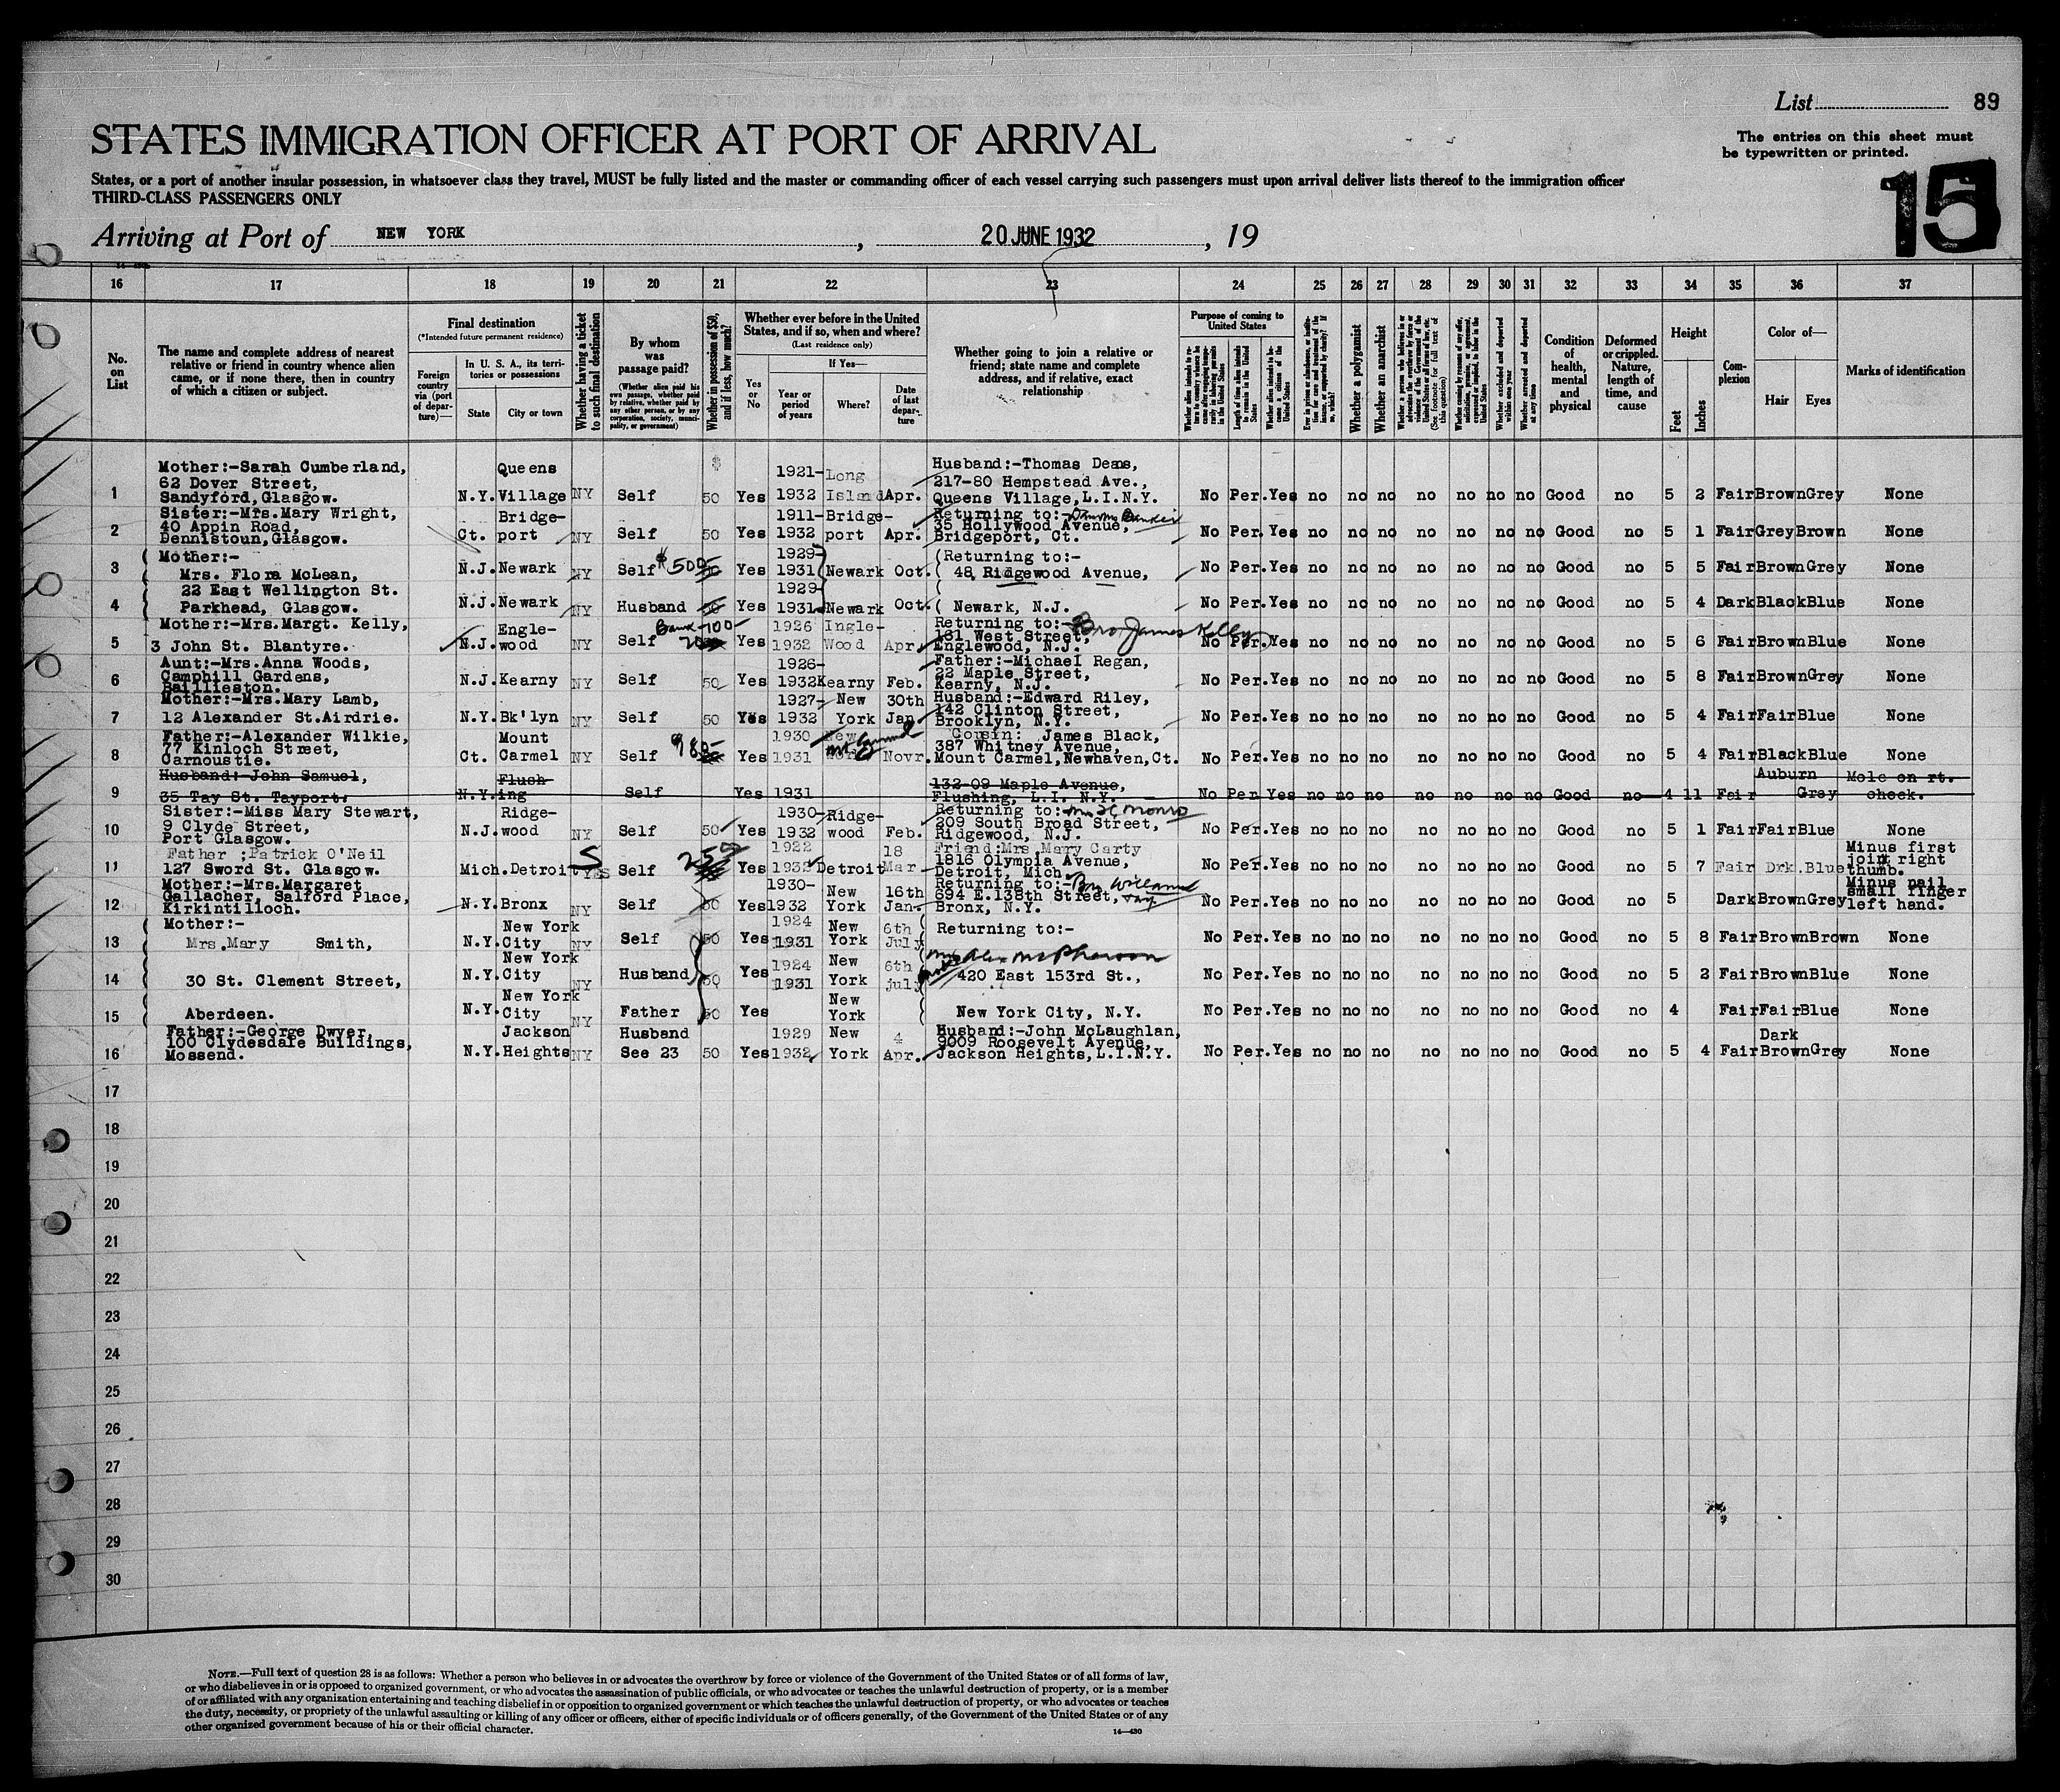 List 89
STATES IMMIGRATION OFFICER AT PORT OF ARRIVAL
The entries on this sheet must
be typewritten or printed.
States, or a port of another insular possession, in whatsoever class they travel, MUST be fully listed and the master or commanding officer of each vessel carrying such passengers must upon arrival deliver lists thereof to the immigration officer
THIRD-CLASS PASSENGERS ONLY
15
Arriving at Port of NEW YORK , 20 JUNE 1932 , 19
16 17 18 19 20 21 22 23 24 25 26 27 28 29 30 31 32 33 34 35 36 37
No. on List
The name and complete address of nearest relative or friend in country whence alien came, or if none there, then in country of which a citizen or subject.
Final destination
(*Intended future permanent residence)
Foreign country via (port of departure)—
In U. S. A., its territories or possessions
State City or town
Whether having a ticket to such final destination
By whom was passage paid?
(Whether alien paid his own passage, whether paid by relative, whether paid by any other person, or by any corporation, society, municipality, or government)
Whether in possession of $50, and if less, how much?
Whether ever before in the United States, and if so, when and where?
(Last residence only)
Yes or No
If Yes—
Year or period of years Where? Date of last departure
Whether going to join a relative or friend; state name and complete address, and if relative, exact relationship
Purpose of coming to United States
Length of time alien intends to remain in the United States
Whether alien intends to become a citizen of the United States
Whether a polygamist
Whether an anarchist
Whether excluded and deported within one year
Whether arrested and deported at any time
Condition of health, mental and physical
Deformed or crippled. Nature, length of time, and cause
Height
Feet Inches
Complexion
Color of—
Hair Eyes
Marks of identification
Mother:-Sarah Cumberland, Queens $ 1921- Long Husband:-Thomas Deans,
62 Dover Street, 217-80 Hempstead Ave.,
1 Sandyford, Glasgow. N.Y. Village NY Self 50 Yes 1932 Island Apr. Queens Village, L.I.N.Y. No Per. Yes no no no no no no no Good no 5 2 Fair Brown Grey None
Sister:-Mrs. Mary Wright, Bridge- 1911- Bridge- Returning to:-
40 Appin Road, 35 Hollywood Avenue,
2 Dennistoun, Glasgow. Ct. port NY Self 50 Yes 1932 port Apr. Bridgeport, Ct. No Per. Yes no no no no no no no Good no 5 1 Fair Grey Brown None
( Mother:- 1929- (Returning to:-
3 Mrs. Flora McLean, N.J. Newark NY Self $500- Yes 1931 Newark Oct. ( 48 Ridgewood Avenue, No Per. Yes no no no no no no no Good no 5 5 Fair Brown Grey None
22 East Wellington St. 1929-
4 ( Parkhead, Glasgow. N.J. Newark NY Husband 50 Yes 1931 Newark Oct. ( Newark, N.J. No Per. Yes no no no no no no no Good no 5 4 Dark Black Blue None
Mother:-Mrs. Margt. Kelly, Engle- Bank-700- 1926 Ingle- Returning to:- Bro James Kelly
161 West Street,
5 3 John St. Blantyre. N.J. wood NY Self Yes 1932 Wood Apr. Englewood, N.J. No Per. Yes no no no no no no no Good no 5 6 Fair Brown Blue None
Aunt:-Mrs. Anna Woods, 1926- Father:-Michael Regan,
Camphill Gardens, 22 Maple Street,
6 Baillieston. N.J. Kearny NY Self 50 Yes 1932 Kearny Feb. Kearny, N.J. No Per. Yes no no no no no no no Good no 5 8 Fair Brown Grey None
Mother:-Mrs. Mary Lamb, 1927- New 30th Husband:-Edward Riley,
142 Clinton Street,
7 12 Alexander St. Airdrie. N.Y. Bk'lyn NY Self 50 Yes 1932 York Jan. Brooklyn, N.Y. No Per. Yes no no no no no no no Good no 5 4 Fair Fair Blue None
Father:-Alexander Wilkie, Mount 1930 New Cousin: James Black,
77 Kinloch Street, 387 Whitney Avenue,
8 Carnoustie. Ct. Carmel NY Self Yes 1931 Novr. Mount Carmel, Newhaven, Ct. No Per. Yes no no no no no no no Good no 5 4 Fair Black Blue None
Husband:-John Samuel, Flush- 132-09 Maple Avenue, Auburn Mole on rt.
9 35 Tay St. Tayport. N.Y. ing Self Yes 1931 Flushing, L.I. N.Y. No Per Yes no no no no no no no Good no 4 11 Fair Grey cheek.
Sister:-Miss Mary Stewart, Ridge- 1930- Ridge- Returning to:-
9 Clyde Street, 209 South Broad Street,
10 Port Glasgow. N.J. wood NY Self 50 Yes 1932 wood Feb. Ridgewood, N.J. No Per. Yes no no no no no no no Good no 5 1 Fair Fair Blue None
Father ;Patrick O'Neil 1922 18 Friend:Mrs Mary Carty Minus first
1816 Olympia Avenue, joint right
11 127 Sword St. Glasgow. Mich. Detroit YES Self 250 Yes 1932 Detroit Mar- Detroit, Mich. No Per. Yes no no no no no no no Good no 5 7 Fair Drk. Blue thumb.
Mother:-Mrs. Margaret 1930- New 16th Returning to:- Minus nail
Gallacher, Salford Place, 694 E. 138th Street, small finger
12 Kirkintilloch. N.Y. Bronx NY Self 50 Yes 1932 York Jan- Bronx, N.Y. No Per. Yes no no no no no no no Good no 5 Dark Brown Grey left hand.
( Mother:- New York 1924 New 6th Returning to:-
13 Mrs. Mary Smith, N.Y. City NY Self 50 Yes 1931 York July No Per. Yes no no no no no no no Good no 5 8 Fair Brown Brown None
New York 1924 New 6th Mrs Alex McPherson
14 30 St. Clement Street, N.Y. City NY Husband 50 Yes 1931 York July 420 East 153rd St., No Per. Yes no no no no no no no Good no 5 2 Fair Brown Blue None
New York New
15 ( Aberdeen. N.Y. City NY Father 50 Yes York New York City, N.Y. No Per. Yes no no no no no no no Good no 4 Fair Fair Blue None
Father:-George Dwyer, Jackson Husband 1929 New 4 Husband:-John McLaughlan, Dark
100 Clydesdale Buildings, 9009 Roosevelt Avenue,
16 Mossend. N.Y. Heights NY See 23 50 Yes 1932 York Apr. Jackson Heights, L.I.N.Y. No Per. Yes no no no no no no no Good no 5 4 Fair Brown Grey None
17
18
19
20
21
22
23
24
25
26
27
28
29
30
NOTE.—Full text of question 28 is as follows: Whether a person who believes in or advocates the overthrow by force or violence of the Government of the United States or of all forms of law,
or who disbelieves in or is opposed to organized government, or who advocates the assassination of public officials, or who advocates or teaches the unlawful destruction of property, or is a member
of or affiliated with any organization entertaining and teaching disbelief in or opposition to organized government or which teaches the unlawful destruction of property, or who advocates or teaches
the duty, necessity, or propriety of the unlawful assaulting or killing of any officer or officers, either of specific individuals or of officers generally, of the Government of the United States or of any
other organized government because of his or their official character.
14—430